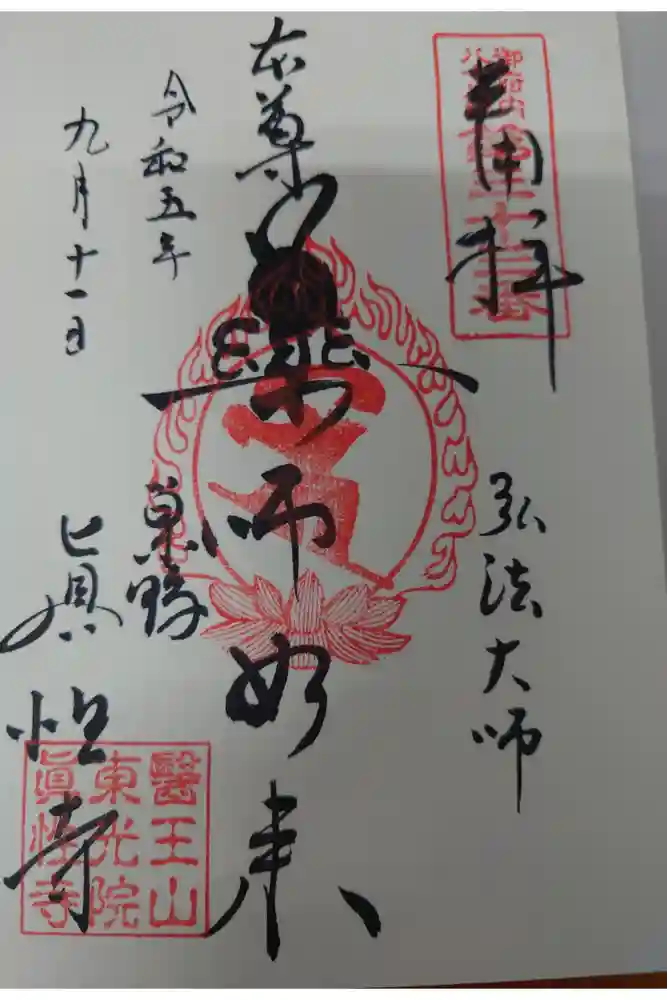 奉拝
御府内
第三十三番
弘法大師
本尊
薬師如来
令和五年
九月十一日
巣鴨
眞性寺
醫王山
東光院
眞性寺